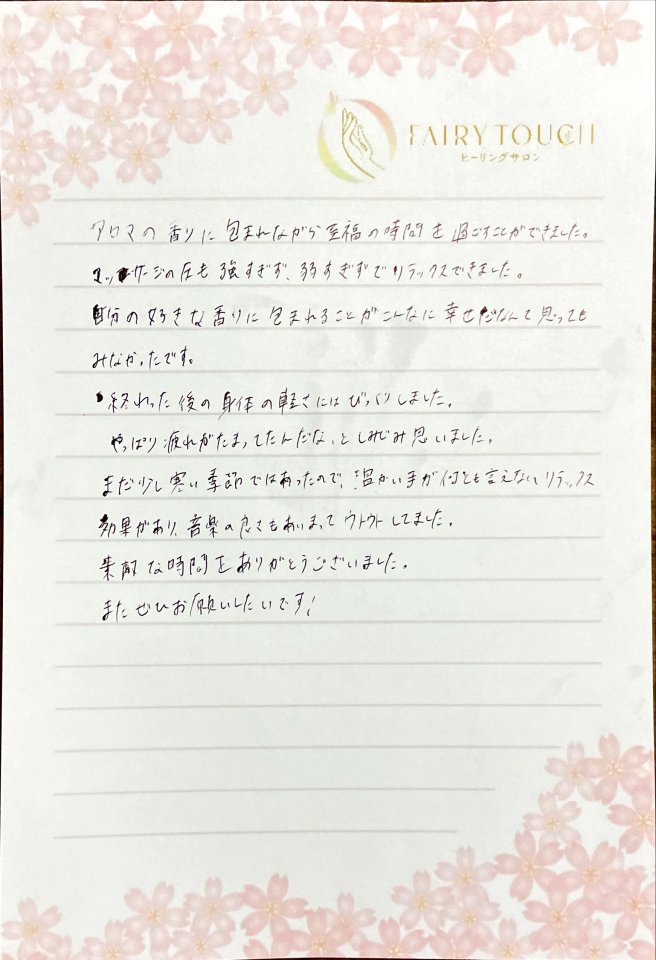 FAIRY TOUCH
ヒーリングサロン
アロマの香りに包まれながら至福の時間を過ごすことができました。
マッサージの圧も強すぎず、弱すぎずでリラックスできました。
自分の好きな香りに包まれることがこんなに幸せだなんて思っても
みなかったです。
終わった後の身体の軽さにはびっくりしました。
やっぱり疲れがたまってたんだな、としみじみ思いました。
まだ少し寒い季節ではあったので、温かい手が何とも言えないリラックス
効果があり、音楽の良さもあいまってウトウトしてました。
素敵な時間をありがとうございました。
またぜひお願いしたいです!